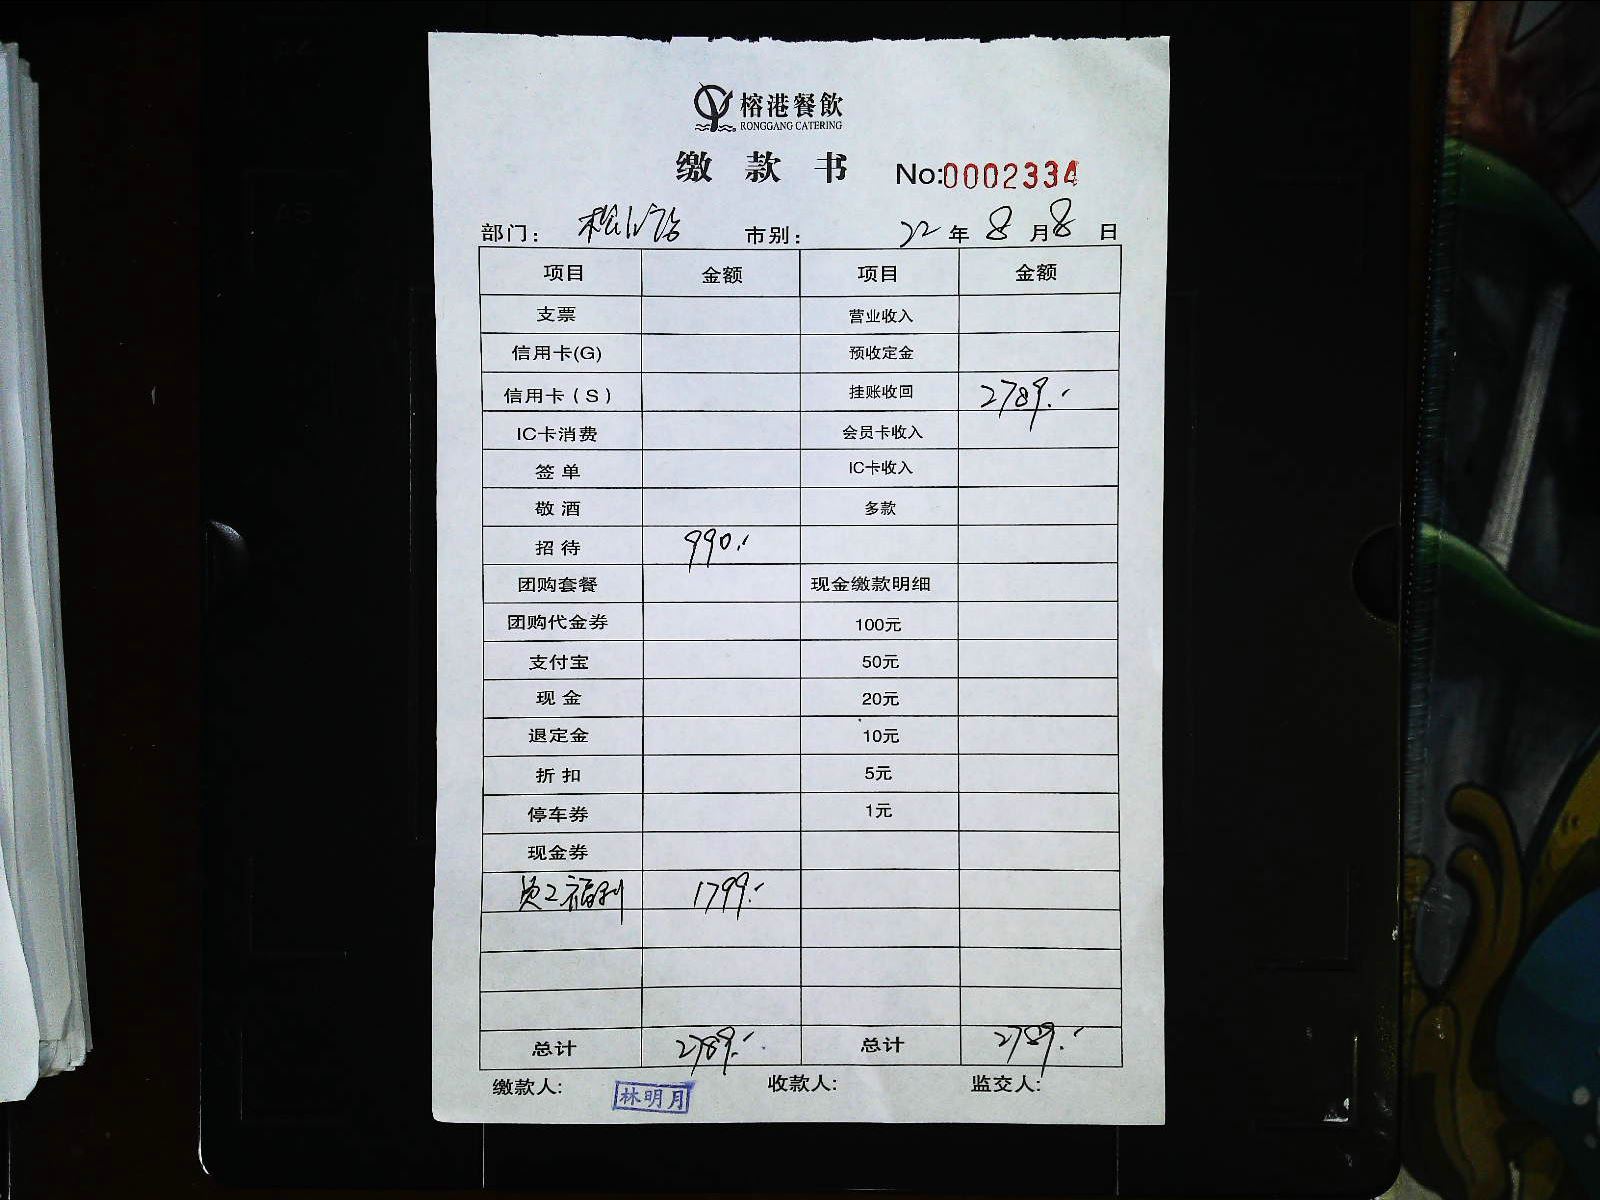 榕港餐飲
RONGGANG CATERING
缴 款 书 No:0002334
部门： 市别： 22 年 8 月 8 日
项目 金额 项目 金额
支票 营业收入
信用卡(G) 预收定金
信用卡（S） 挂账收回 2789.-
IC卡消费 会员卡收入
签 单 IC卡收入
敬 酒 多款
招 待 990.-
团购套餐 现金缴款明细
团购代金券 100元
支付宝 50元
现 金 20元
退定金 10元
折 扣 5元
停车券 1元
现金券
员工福利 1799.-
总计 2789.- 总计 2789.-
缴款人: 林明月 收款人: 监交人: